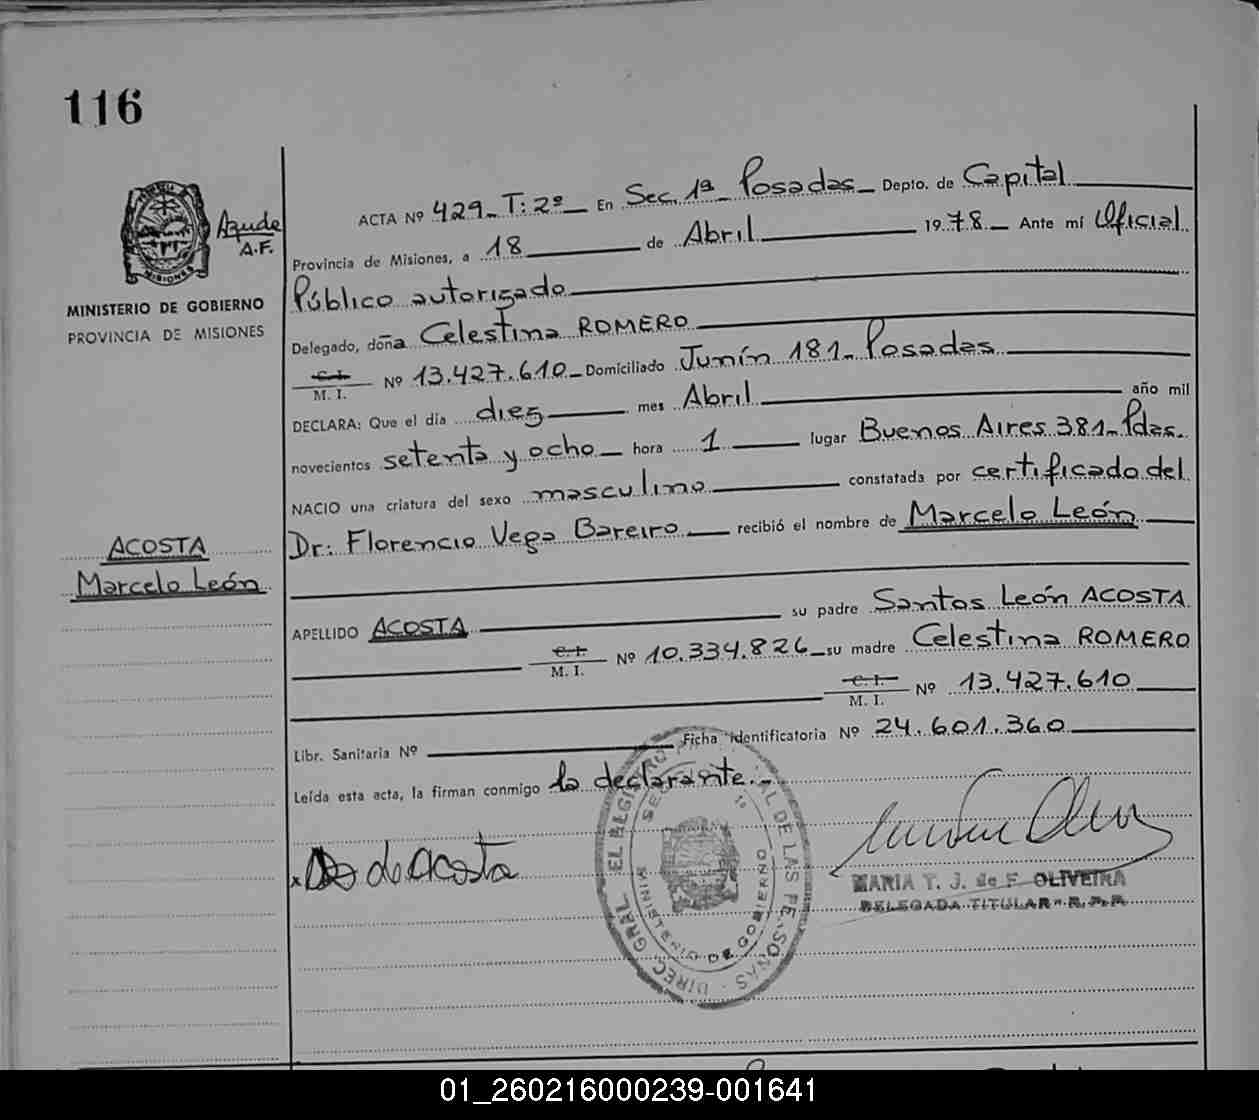 116
Azude
A.F.
MINISTERIO DE GOBIERNO
PROVINCIA DE MISIONES
ACTA Nº 429_ T: 2º_ En Sec. 1ª Posadas_ Depto. de Capital
Provincia de Misiones, a 18 de Abril 1978._ Ante mí Oficial
Público autorizado
Delegado, doña Celestina ROMERO
C.I.
M. I. Nº 13.427.610_ Domiciliado Junín 181_ Posadas
DECLARA: Que el día diez mes Abril año mil
novecientos setenta y ocho_ hora 1 lugar Buenos Aires 381_ Pdas.
NACIO una criatura del sexo masculino constatada por certificado del
Dr: Florencio Vega Bareiro recibió el nombre de Marcelo León
ACOSTA
Marcelo León
APELLIDO ACOSTA su padre Santos León ACOSTA
C.I.
M. I. Nº 10.334.826_ su madre Celestina ROMERO
C.I.
M. I. Nº 13.427.610
Libr. Sanitaria Nº Ficha Identificatoria Nº 24.601.360
Leída esta acta, la firman conmigo la declarante._
x de Acosta
MARIA T. J. de F. OLIVEIRA
DELEGADA TITULAR - R.P.P.
MINISTERIO DE GOBIERNO
MISIONES
01_260216000239-001641